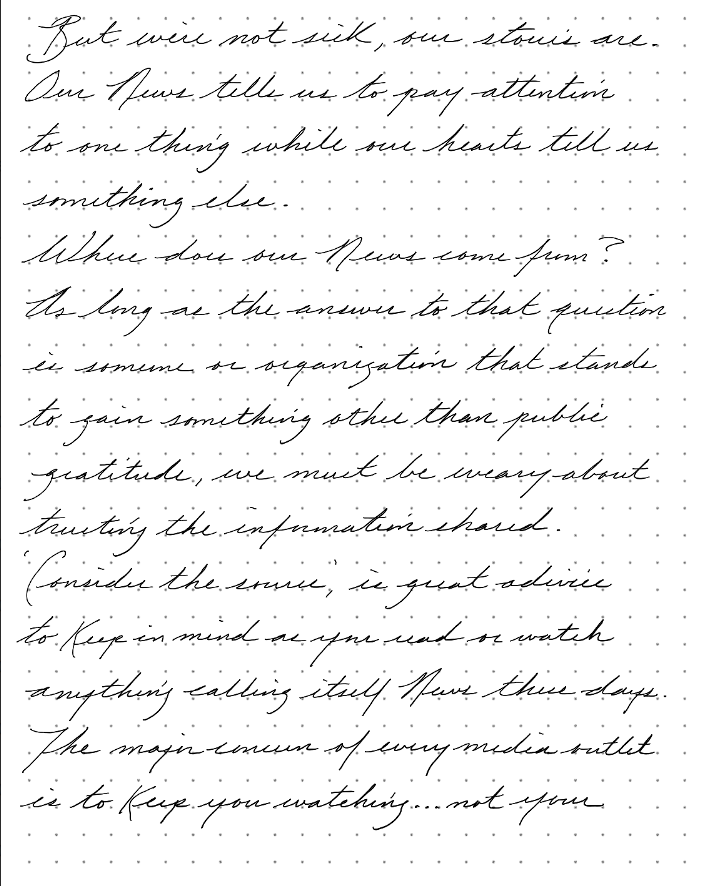 But we're not sick, our stories are.
Our News tells us to pay attention
to one thing while our hearts tell us
something else.
Where does our News come from?
As long as the answer to that question
is someone or organization that stands
to gain something other than public
gratitude, we must be weary about
trusting the information shared.
'Consider the source', is great advice
to Keep in mind as you read or watch
anything calling itself News these days.
The major concern of every media outlet
is to Keep you watching...not your